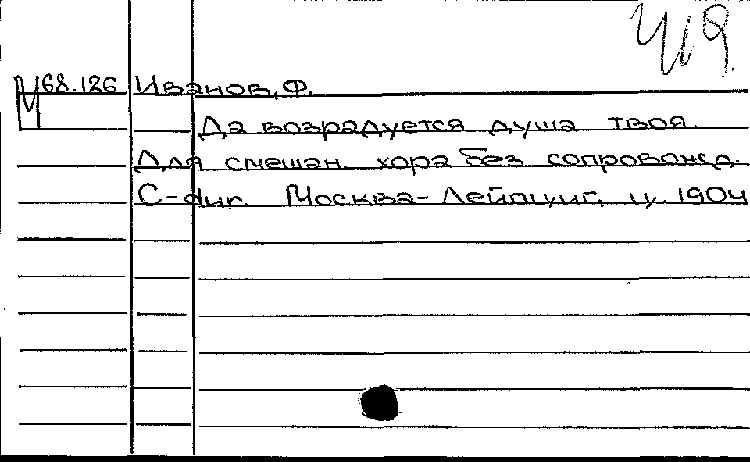 М 68.126 Иванов, Ф.
Да возрадуется душа твоя.
Для смешан. хора без сопровожд.
C-dur. Москва-Лейпциг, ц. 1904